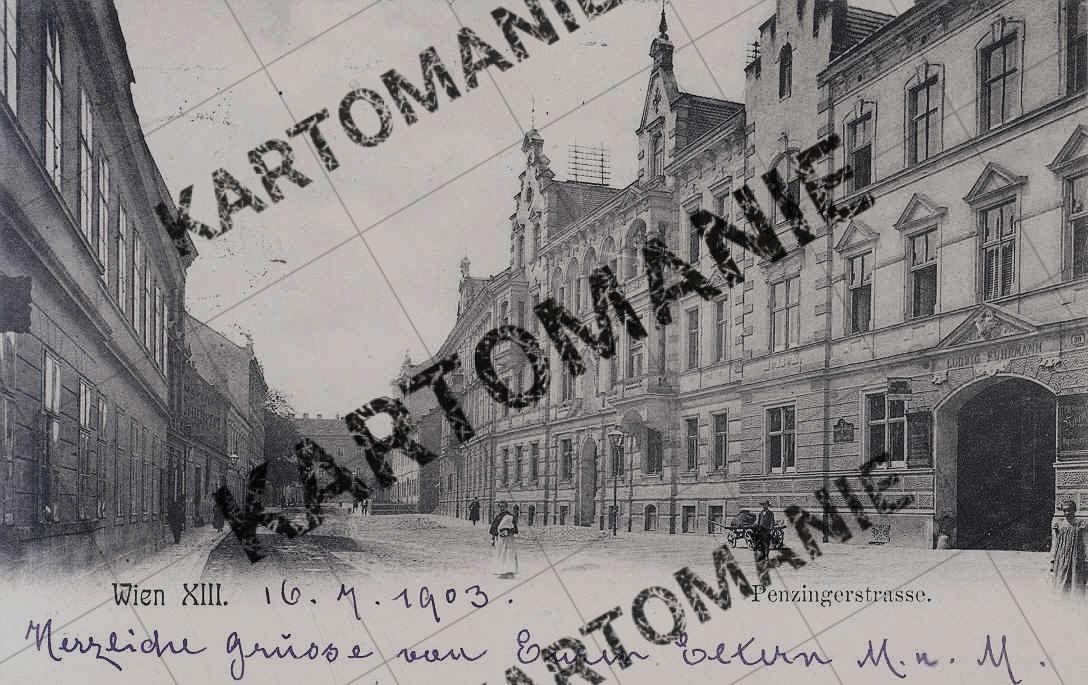 KARTOMANIE
KARTOMANIE
KARTOMANIE
KARTOMANIE
LUDWIG FUHRMANN
Wien XIII. 16. 7. 1903.
Penzingerstrasse.
Herzliche Grüsse von Euren Eltern M. u. M.